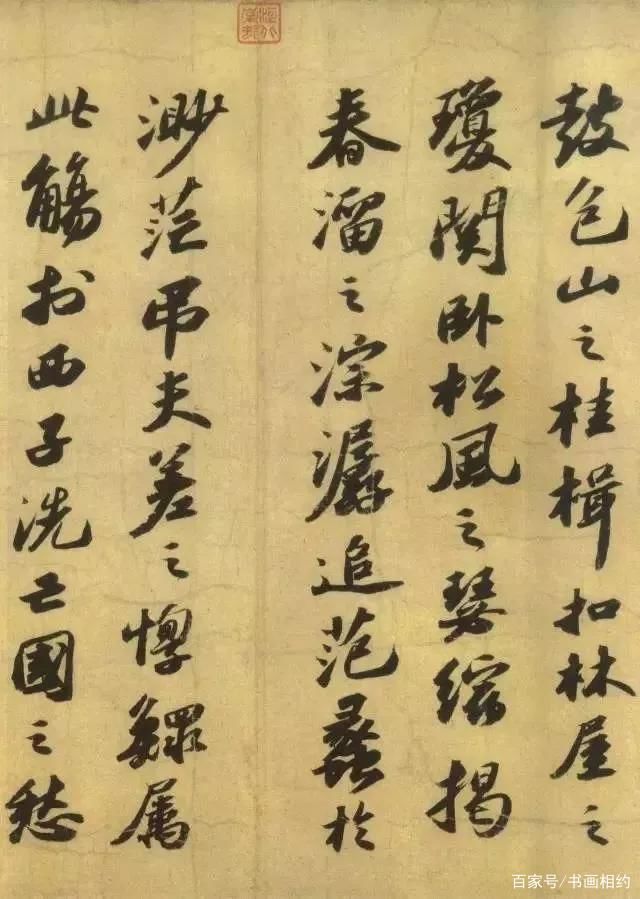 鼓包山之桂楫扣林屋之
瓊関卧松風之瑟縮揭
春溜之淙潺追范蠡於
渺茫吊夫差之惸鰥属
此觴於西子洗亡國之愁
百家号/书画相约